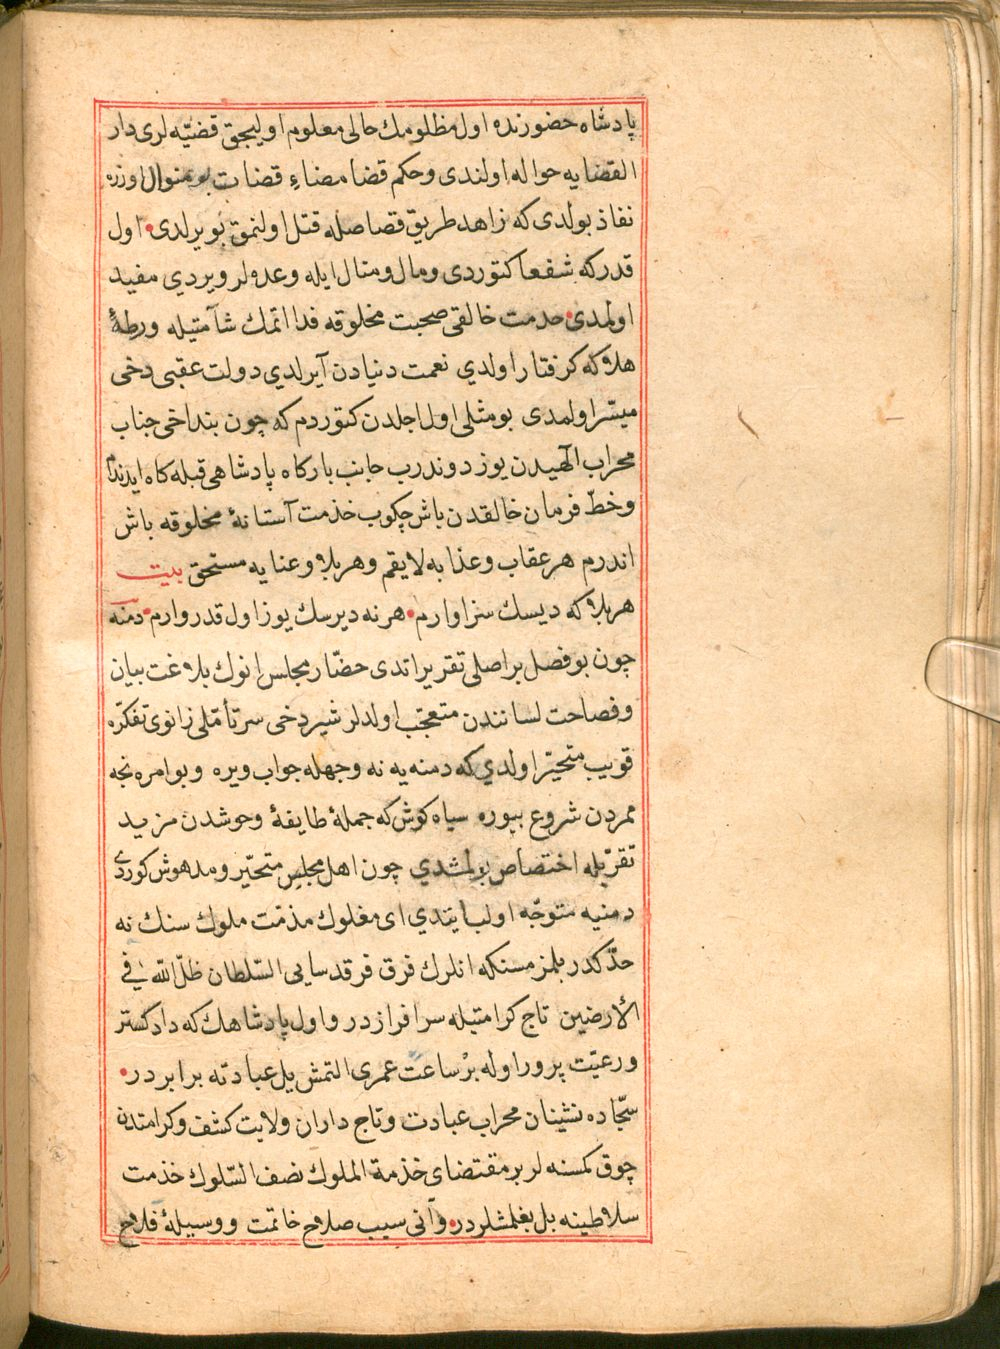 پادشاه حضورنده اول مظلومك حالی معلوم اولیجق قضیّه لری دار
القضایه حواله اولندی وحكم قضا مضاء قضات بو منوال اوزره
نفاذ بولدی كه زاهد طریق قصاصله قتل اولنمق بویرلدی اول
قدر كه شفعا كتوردی ومال ومنال ایله وعده لر ویردي مفید
اولمدی خدمت خالقی صحبت مخلوقه فدا اتمك شآمتیله ورطهٔ
هلاكه كرفتار اولدي نعمت دنیادن آیرلدي دولت عقبی دخی
میسّر اولمدی بو مثلی اول اجلدن كتوردم كه چون بنداخی جناب
محراب الٓهیدن یوز دوندرب جانب باركاه پادشاهی قبله كاه ایدندم
وخطّ فرمان خالقدن باش چكوب خذمت آستانهٔ مخلوقه باش
اندرم هر عقاب وعذابه لایقم وهر بلا وعنایه مستحق بیت
هر بلا كه دیسك سزاوارم هر نه دیرسك یوز اول قدر وارم دمنه
چون بو فصل بر اصلی تقریر اتدی حضّار مجلس انوك بلاغت بیان
وفصاحت لسانندن متعجّب اولدلر شیر دخی سر تأمّلی زانوی تفكّره
قویب متحیّر اولدي كه دمنه یه نه وجهله جواب ویره وبو امره نجه
ممردن شروع بیوره سیاه كوش كه جملهٔ طایفهٔ وحوشدن مزید
تقرّبله اختصاص بولمشدي چون اهل مجلس متحیّر ومدهوش كوردی
دمنیه متوجّه اولب ایتدي ای مغلوك مذمّت ملوك سنك نه
حدّكدر بلمزمسنكه انلرك فرق فرقدسایی السّلطان ظلّ الله في
الأرضین تاج كرامتیله سرافرازدر واول پادشاهك كه دادكستر
ورعیّت پرور اوله بر ساعت عمری التمش یل عبادته برابردر
سجّاده نشینان محراب عبادت وتاج داران ولایت كشف وكرامتدن
چوق كمسنه لر بر مقتضای خذمة الملوك نصف السّلوك خذمت
سلاطینه بل بغلمشلردر وآنی سبب صلاح خاتمت ووسیلهٔ فلاح